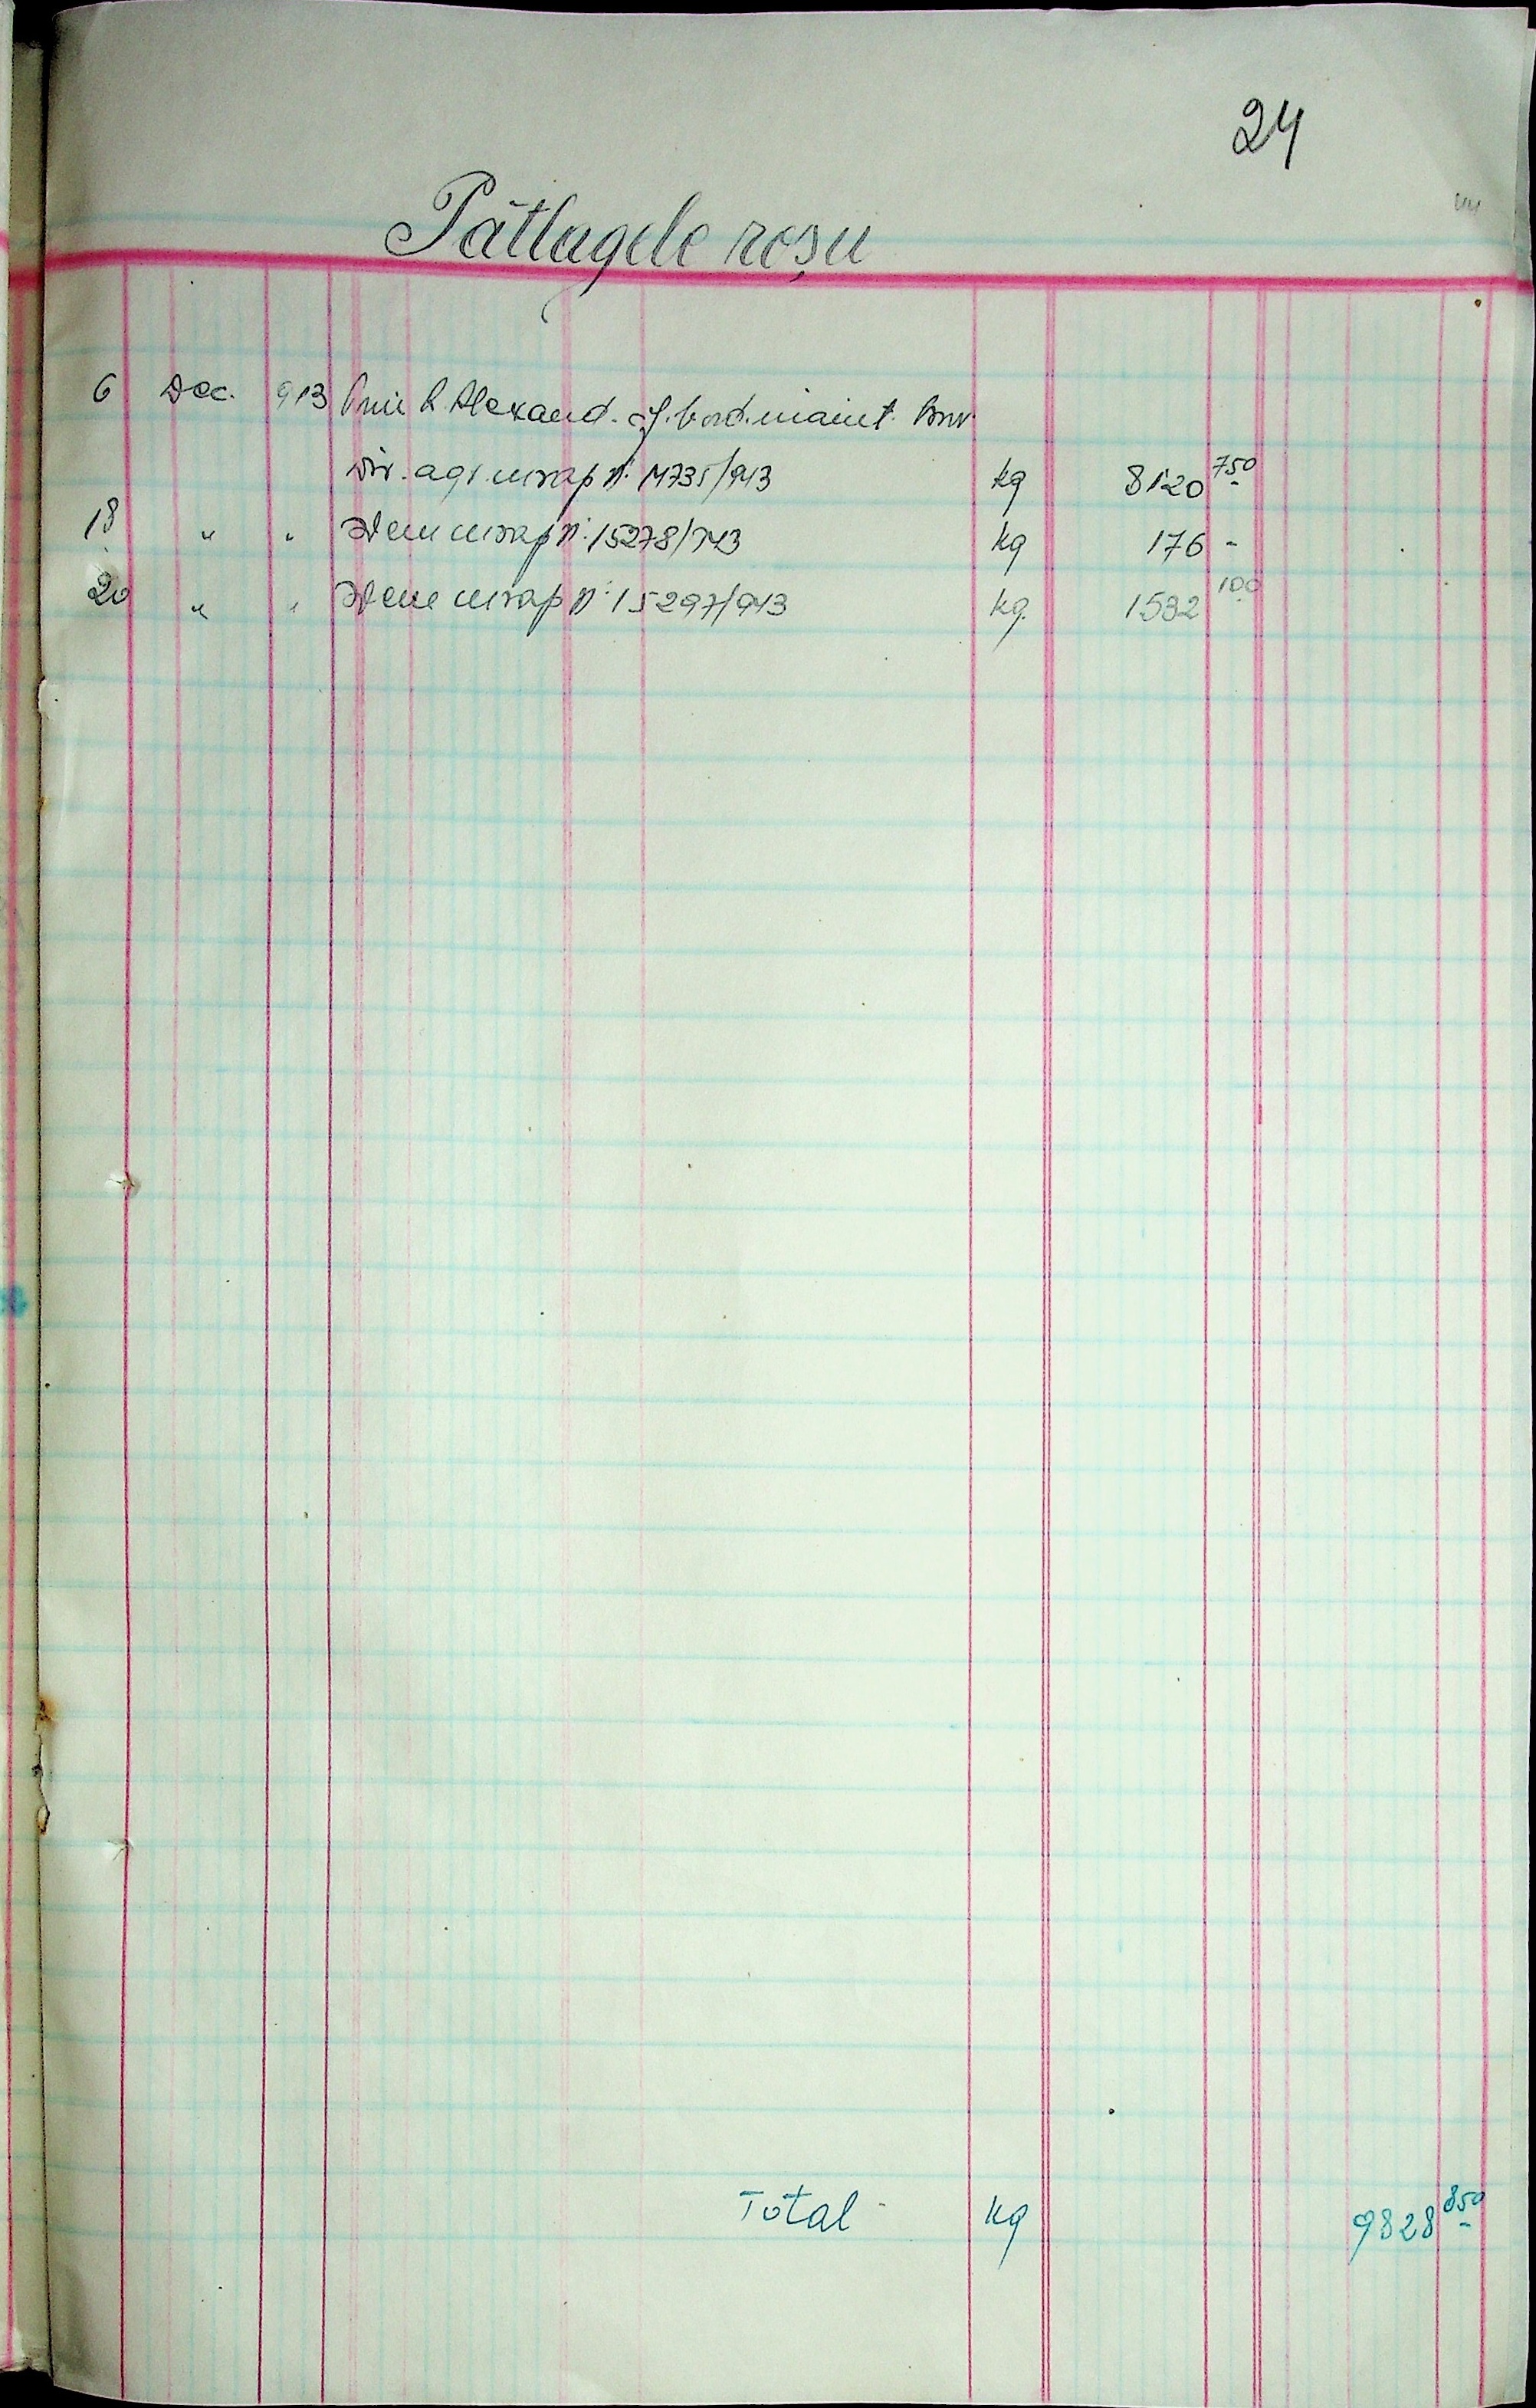 24
Pătlagele roșu
6 Dec. 913 Prin R. Alexand. cf. bord. Inv.
Div. agr. cu rap. N: 14735/943 kg 8120 750
18 " " Idem cu rap N: 15278/943 kg 176 -
20 " " Idem cu rap N: 15297/943 kg. 1532 100
Total - kg 9828 850